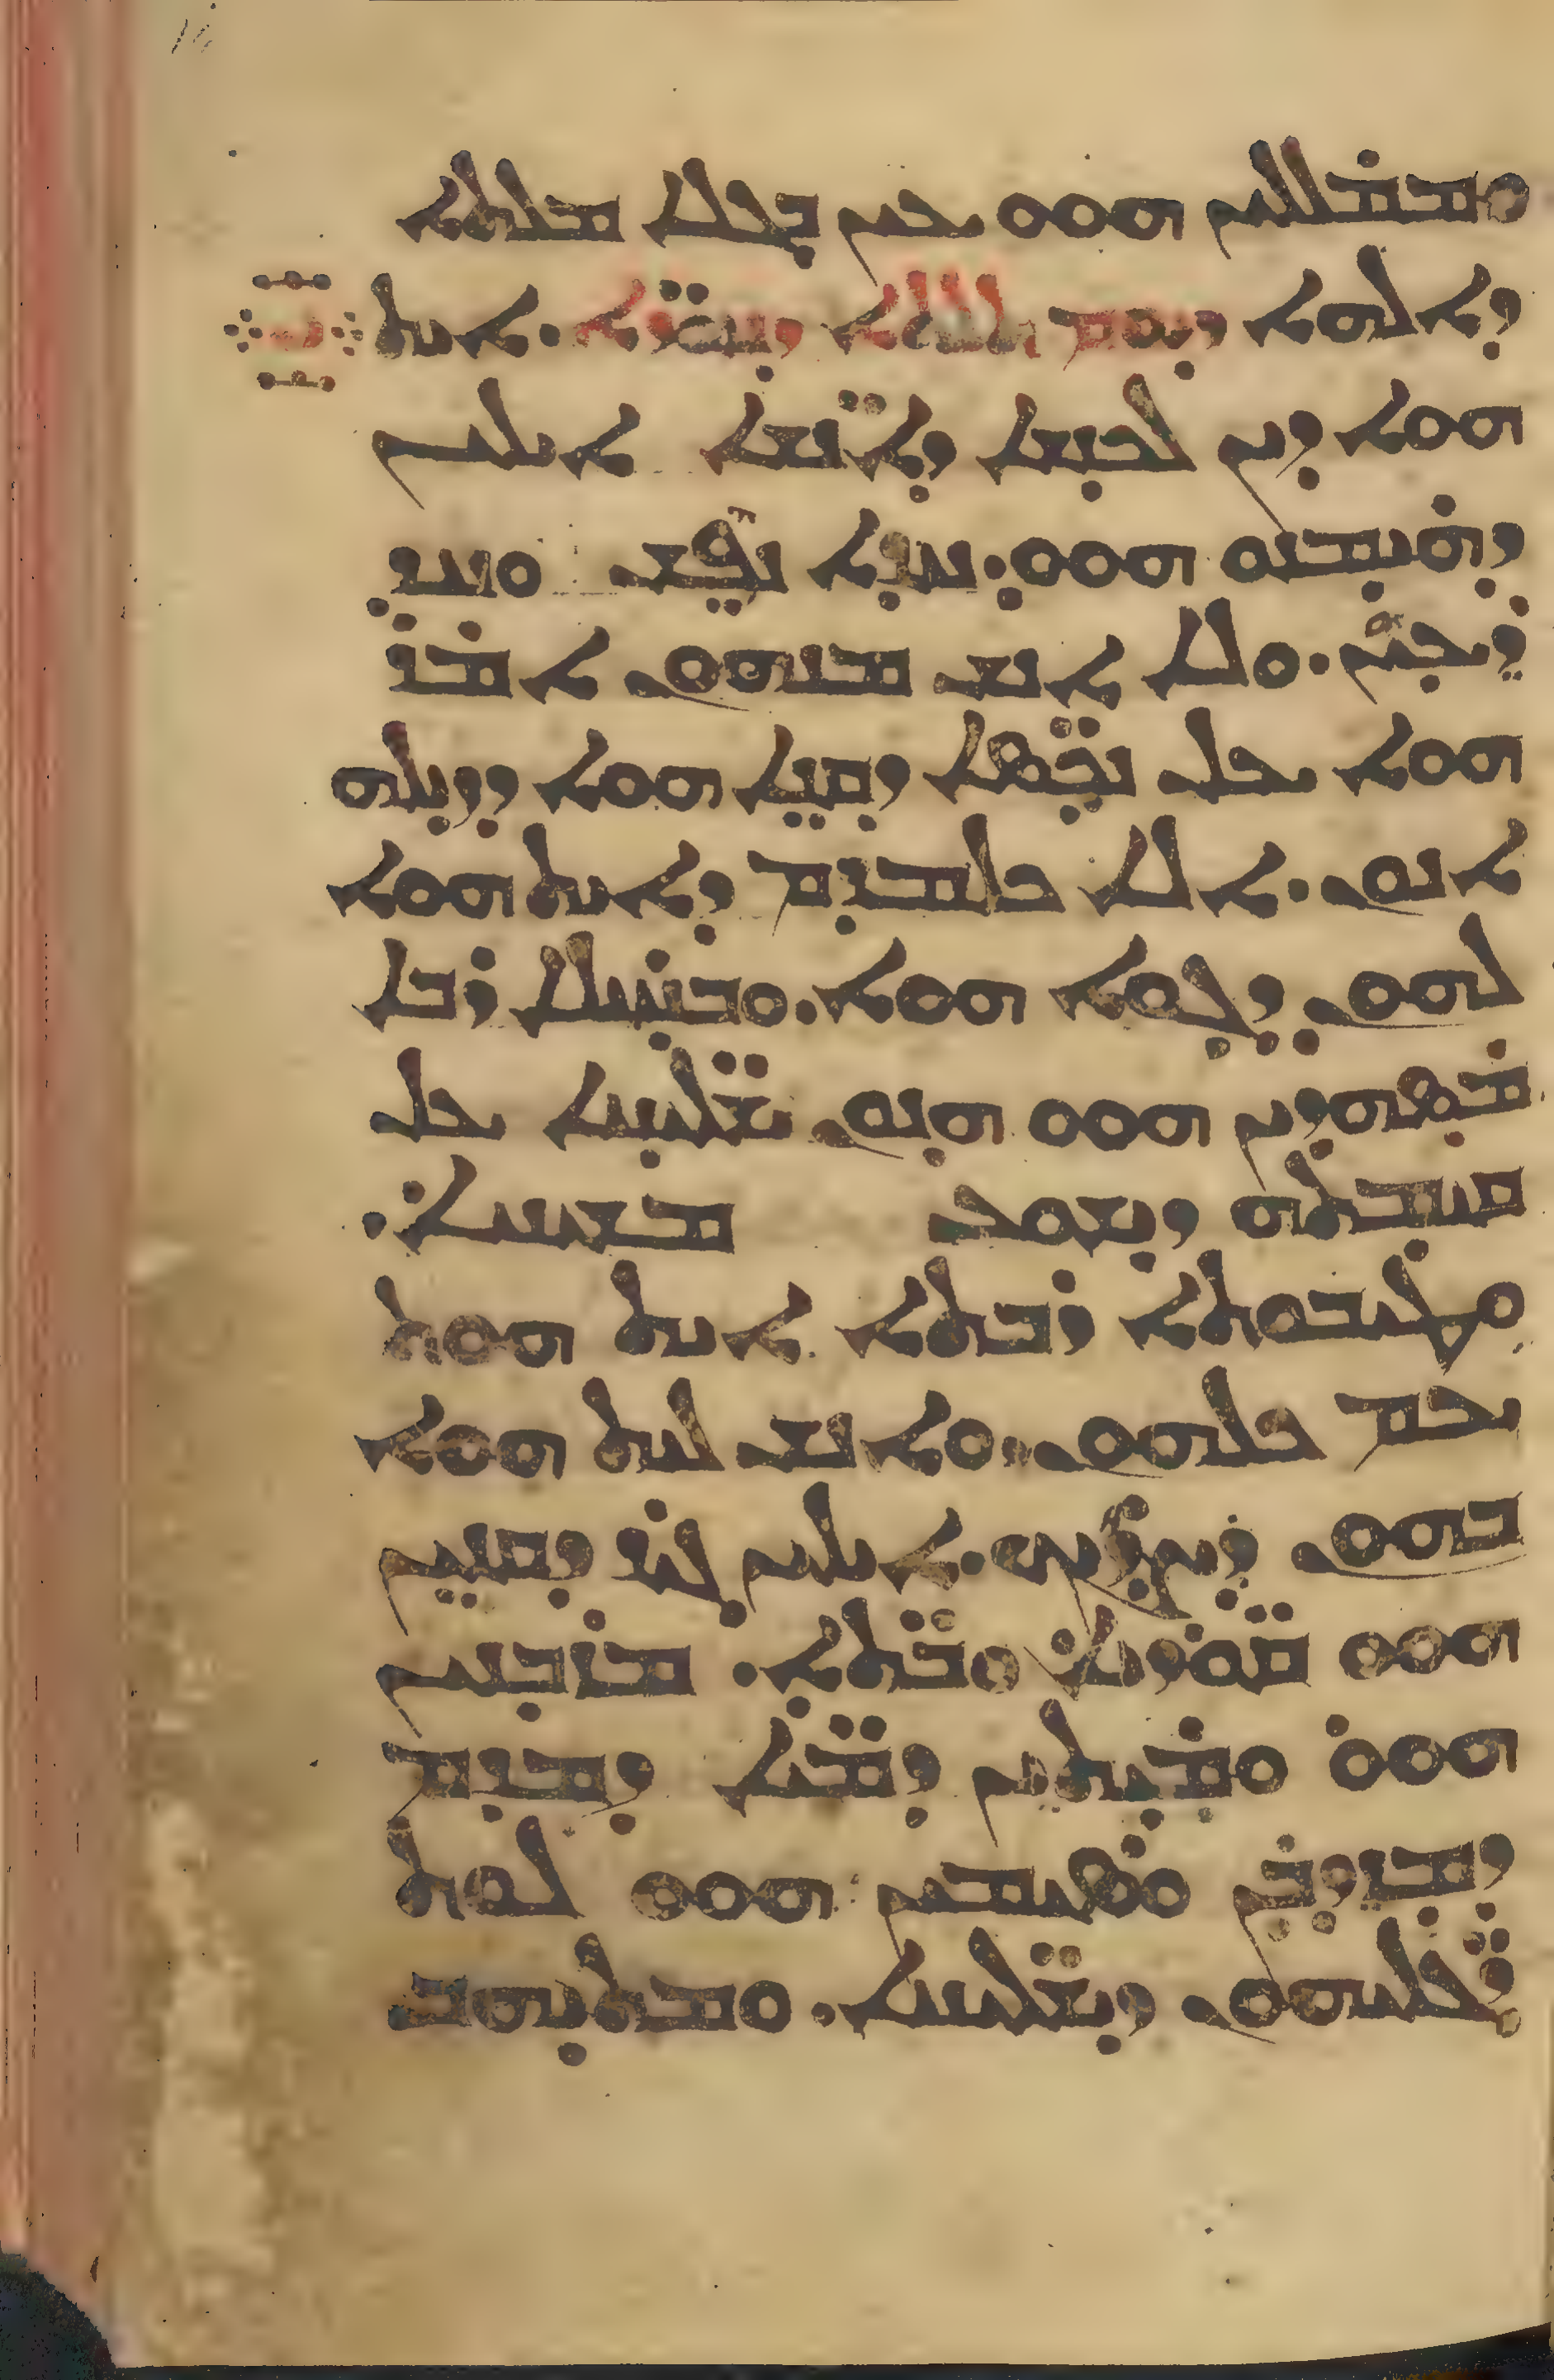 ܘܡܡܠܠܝܢ ܗܘܘ ܥܝܢ ܒܓܠܐ ܡܠܬܐ
ܕܐܠܗܐ ܕܝܘܡ ܬܠܬܐ ܕܚܘܪ̈ܐ. ܐܝܬ
ܗܘܐ ܕܝܢ ܠܟܢܫܐ ܕܐܢ̈ܫܐ ܐܝܠܝܢ
ܕܗܝܡܢܘ ܗܘܘ: ܚܕܐ ܢܦܫ ܘܚܕ
ܪܥܝܢ. ܘܠܐ ܐܢܫ ܡܢܗܘܢ ܐܡܪ
ܗܘܐ ܥܠ ܢܟ̈ܣܐ ܕܩܢܐ ܗܘܐ ܕܕܝܠܗ
ܐܢܘܢ. ܐܠܐ ܟܠܡܕܡ ܕܐܝܬ ܗܘܐ
ܠܗܘܢ ܕܓܘܐ ܗܘܐ. ܘܒܚܝܠܐ ܪܒܐ
ܡܣܗܕܝܢ ܗܘܘ ܗܢܘܢ ܫܠܝ̈ܚܐ ܥܠ
ܩܝܡܬܗ ܕܝܫܘܥ ܡܫܝܚܐ.
ܘܛܝܒܘܬܐ ܪܒܬܐ ܐܝܬ ܗܘܬ
ܥܡ ܟܠܗܘܢ. ܘܐܢܫ ܠܝܬ ܗܘܐ
ܒܗܘܢ ܕܨܪܝܟ. ܐܝܠܝܢ ܓܝܪ ܕܩܢܝܢ
ܗܘܘ ܩܘܪ̈ܝܐ ܘܒ̈ܬܐ. ܡܙܒܢܝܢ
ܗܘܘ ܘܡܝܬܝܢ ܕܡ̈ܝܐ ܕܡܕܡ
ܕܡܙܕܒܢ ܘܣܝܡܝܢ ܗܘܘ ܠܘܬ
ܪ̈ܓܠܝܗܘܢ ܕܫܠܝ̈ܚܐ. ܘܡܬܝܗܒ